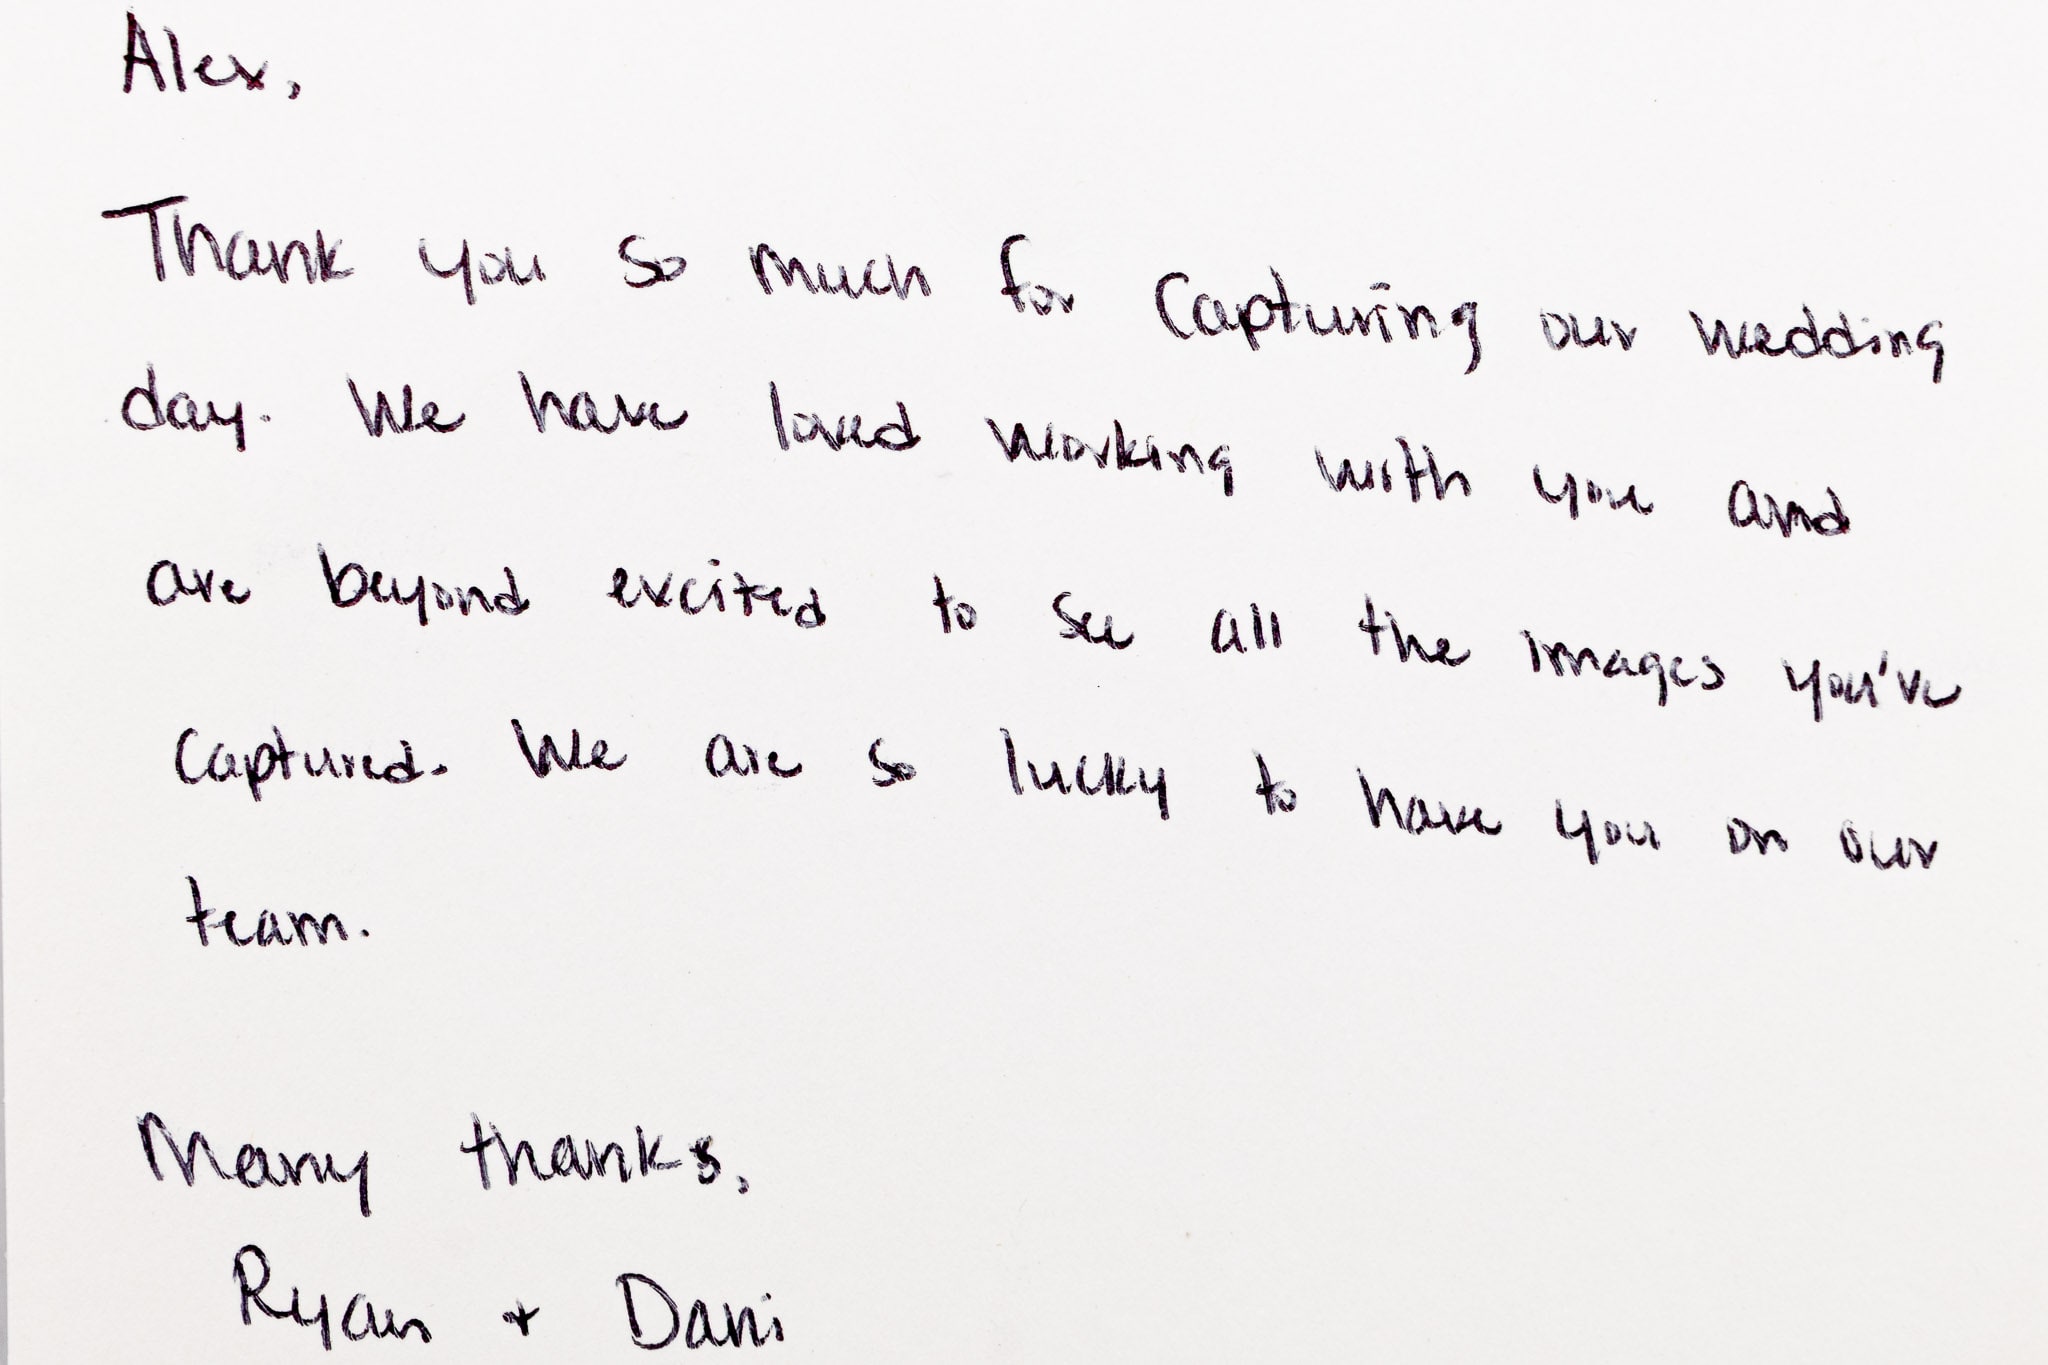 Alex,
Thank you so much for capturing our wedding
day. We have loved working with you and
are beyond excited to see all the images you've
captured. We are so lucky to have you on our
team.
Many thanks,
Ryan + Dani